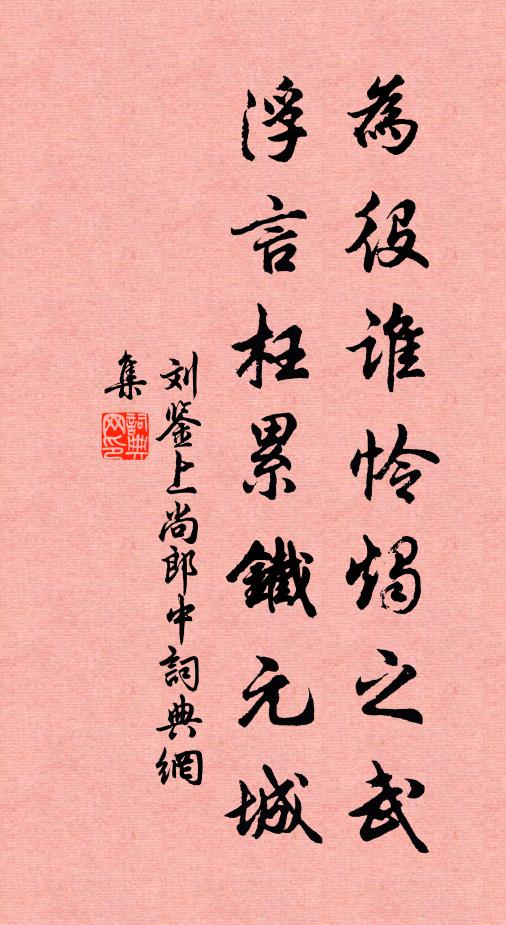 為役誰憐燭之武
浮言枉累鐵元城
刘鉴上尚郎中詞典網
集
詞典网印